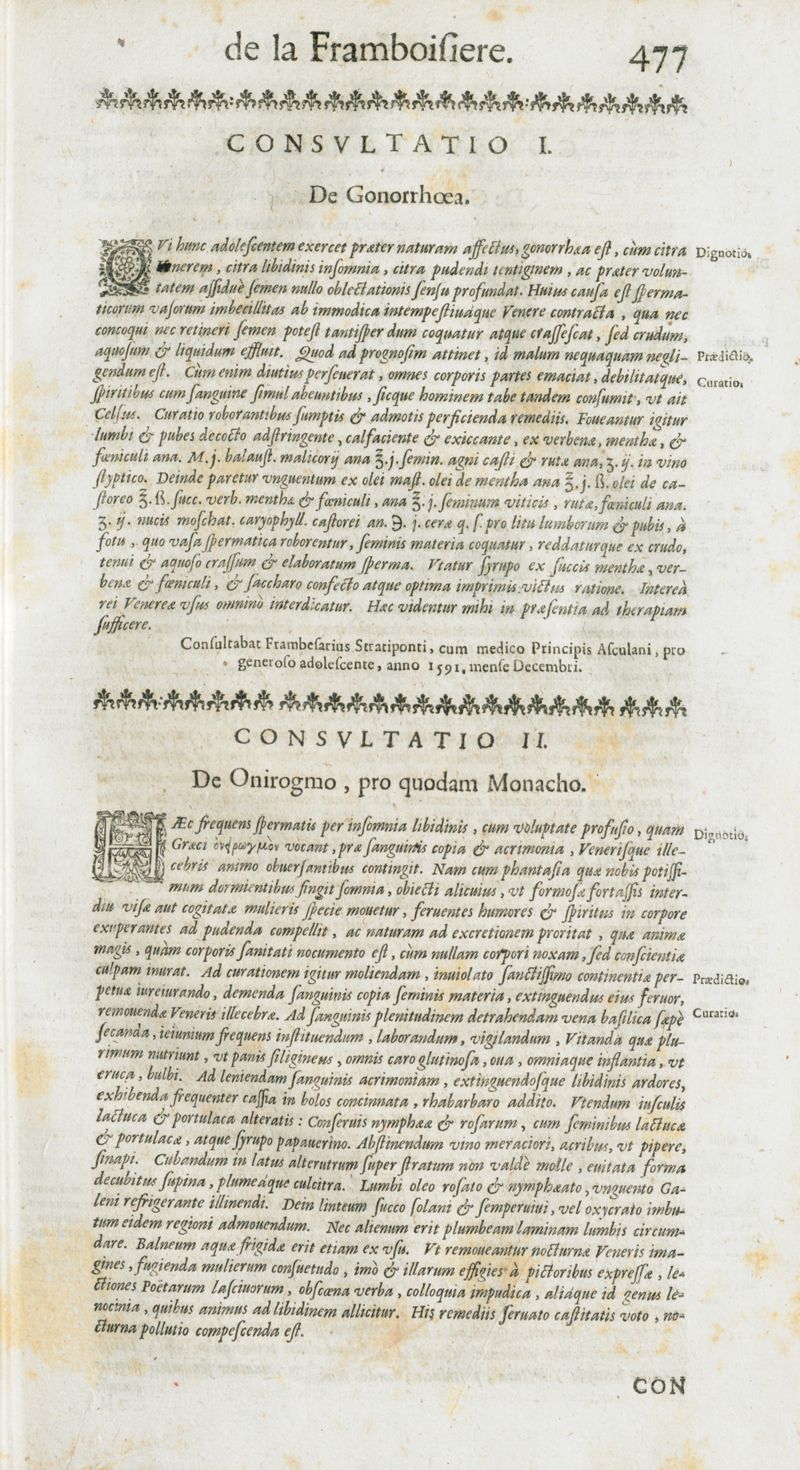 de la Framboiſiere. 477
CONSVLTATIO I.
De Gonorrhœa.
QVi hunc adoleſcentem exercet præter naturam affectus, gonorrhæa eſt, cùm citra Dignotio.
Venerem, citra libidinis inſomnia, citra pudendi tentiginem, ac præter volun-
tatem aſſiduè ſemen nullo oblectationis ſenſu profundat. Huius cauſa eſt ſperma-
ticorum vaſorum imbecillitas ab immodica intempeſtiuáque Venere contracta, qua nec
concoqui nec retineri ſemen poteſt tantiſper dum coquatur atque craſſeſcat, ſed crudum,
aquoſum & liquidum effluit. Quod ad prognoſim attinet, id malum nequaquam negli- Prædictio.
gendum eſt. Cùm enim diutius perſeuerat, omnes corporis partes emaciat, debilitatque, Curatio.
ſpiritibus cum ſanguine ſimul abeuntibus, ſicque hominem tabe tandem conſumit, vt ait
Celſus. Curatio roborantibus ſumptis & admotis perficienda remediis. Foueantur igitur
lumbi & pubes decocto adſtringente, calfaciente & exiccante, ex verbena, mentha, &
fœniculi ana. M. j. balauſt. malicorij ana ℥. j. ſemin. agni caſti & rutæ ana, ʒ. ij. in vino
ſtyptico. Deinde paretur vnguentum ex olei maſt. olei de mentha ana ℥. j. ß. olei de ca-
ſtoreo ℥. ß. ſucc. verb. menthæ & fœniculi, ana ℥. j. ſeminum viticis, rutæ, fœniculi ana.
ʒ. ij. nucis moſchat. caryophyll. caſtorei an. ℈. j. ceræ q. ſ. pro litu lumborum & pubis, à
fotu, quo vaſa ſpermatica roborentur, ſeminis materia coquatur, reddaturque ex crudo,
tenui & aquoſo craſſum & elaboratum ſperma. Vtatur ſyrupo ex ſuccis menthæ, ver-
benæ & fœniculi, & ſaccharo confecto atque optima imprimis victus ratione. Intereà
rei Venereæ vſus omninò interdicatur. Hæc videntur mihi in præſentia ad therapiam
ſufficere.
Conſultabat Frambeſarius Stratiponti, cum medico Principis Aſculani, pro
generoſo adoleſcente, anno 1591. menſe Decembri.
CONSVLTATIO II.
De Onirogmo, pro quodam Monacho.
HÆc frequens ſpermatis per inſomnia libidinis, cum voluptate profuſio, quam Dignotio.
Græci ὀνειρωγμὸν vocant, præ ſanguinis copia & acrimonia, Veneriſque ille-
cebris animo obuerſantibus contingit. Nam cum phantaſia quæ nobis potiſſi-
mùm dormientibus fingit ſomnia, obiecti alicuius, vt formoſæ fortaſſis inter-
diu viſæ aut cogitatæ mulieris ſpecie mouetur, feruentes humores & ſpiritus in corpore
exuperantes ad pudenda compellit, ac naturam ad excretionem proritat, quæ animæ
magis, quàm corporis ſanitati nocumento eſt, cùm nullam corpori noxam, ſed conſcientiæ
culpam inurat. Ad curationem igitur moliendam, inuiolato ſanctiſſimo continentiæ per- Prædictio.
petuæ iureiurando, demenda ſanguinis copia ſeminis materia, extinguendus eius feruor,
remouendæ Veneris illecebræ. Ad ſanguinis plenitudinem detrahendam vena baſilica ſæpè Curatio.
ſecanda, ieiunium frequens inſtituendum, laborandum, vigilandum, Vitanda quæ plu-
rimum nutriunt, vt panis ſiligineus, omnis caro glutinoſa, oua, omniaque inflantia, vt
eruca, bulbi. Ad leniendam ſanguinis acrimoniam, extinguendoſque libidinis ardores,
exhibenda frequenter caſſia in bolos concinnata, rhabarbaro addito. Vtendum iuſculis
lactuca & portulaca alteratis: Conſeruis nymphææ & roſarum, cum ſeminibus lactucæ
& portulacæ, atque ſyrupo papauerino. Abſtinendum vino meraciori, acribus, vt pipere,
ſinapi. Cubandum in latus alterutrum ſuper ſtratum non valdè molle, euitata forma
decubitus ſupina, plumeáque culcitra. Lumbi oleo roſato & nymphæato, vnguento Ga-
leni refrigerante illinendi. Dein linteum ſucco ſolani & ſemperuiui, vel oxycrato imbu-
tum eidem regioni admouendum. Nec alienum erit plumbeam laminam lumbis circum-
dare. Balneum aquæ frigidæ erit etiam ex vſu. Vt remoueantur nocturnæ Veneris ima-
gines, fugienda mulierum conſuetudo, imò & illarum effigies à pictoribus expreſſæ, le-
ctiones Poëtarum laſciuorum, obſcœna verba, colloquia impudica, aliáque id genus le-
nocinia, quibus animus ad libidinem allicitur. His remediis ſeruato caſtitatis voto, no-
cturna pollutio compeſcenda eſt.
CON